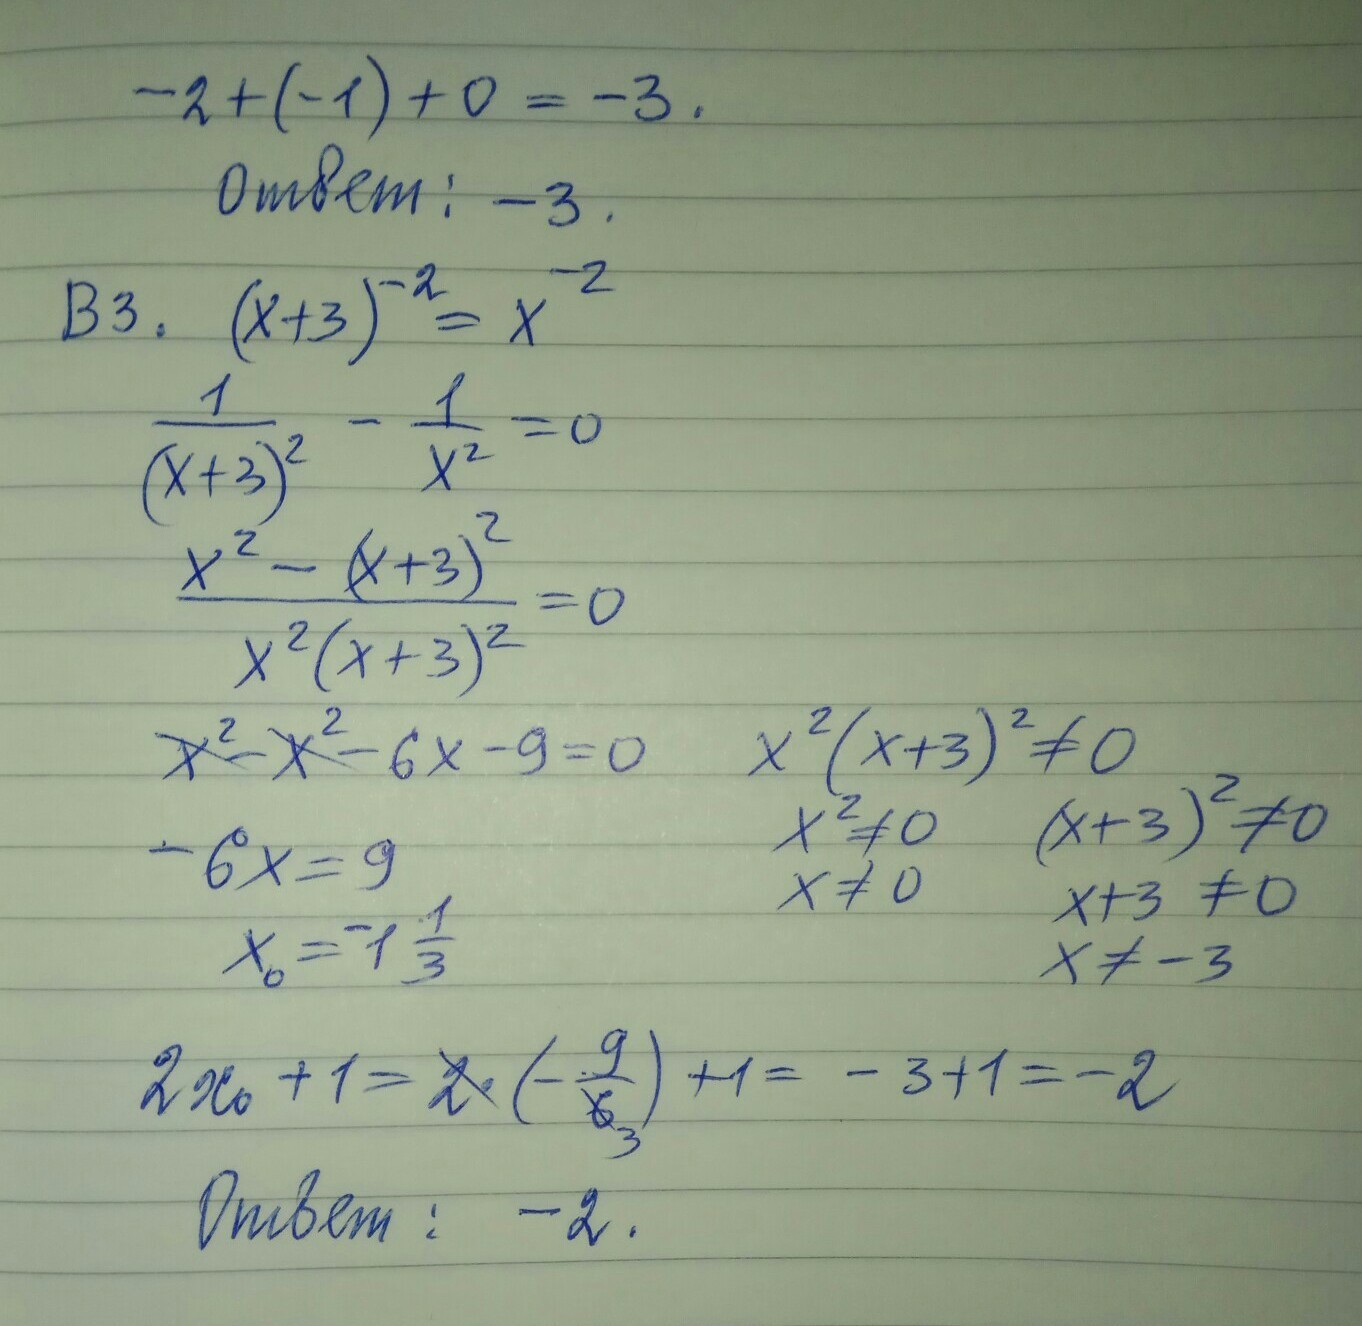 -2+(-1)+0 = -3.
Ответ: -3.
В3. (x+3)^{-2} = x^{-2}
\frac{1}{(x+3)^2} - \frac{1}{x^2} = 0
\frac{x^2 - (x+3)^2}{x^2(x+3)^2} = 0
x^2 - x^2 - 6x - 9 = 0
-6x = 9
x_0 = -1\frac{1}{3}
x^2(x+3)^2 ≠ 0
x^2 ≠ 0 (x+3)^2 ≠ 0
x ≠ 0 x+3 ≠ 0
x ≠ -3
2x_0 + 1 = 2·(-\frac{9}{6_3}) + 1 = -3+1 = -2
Ответ: -2.